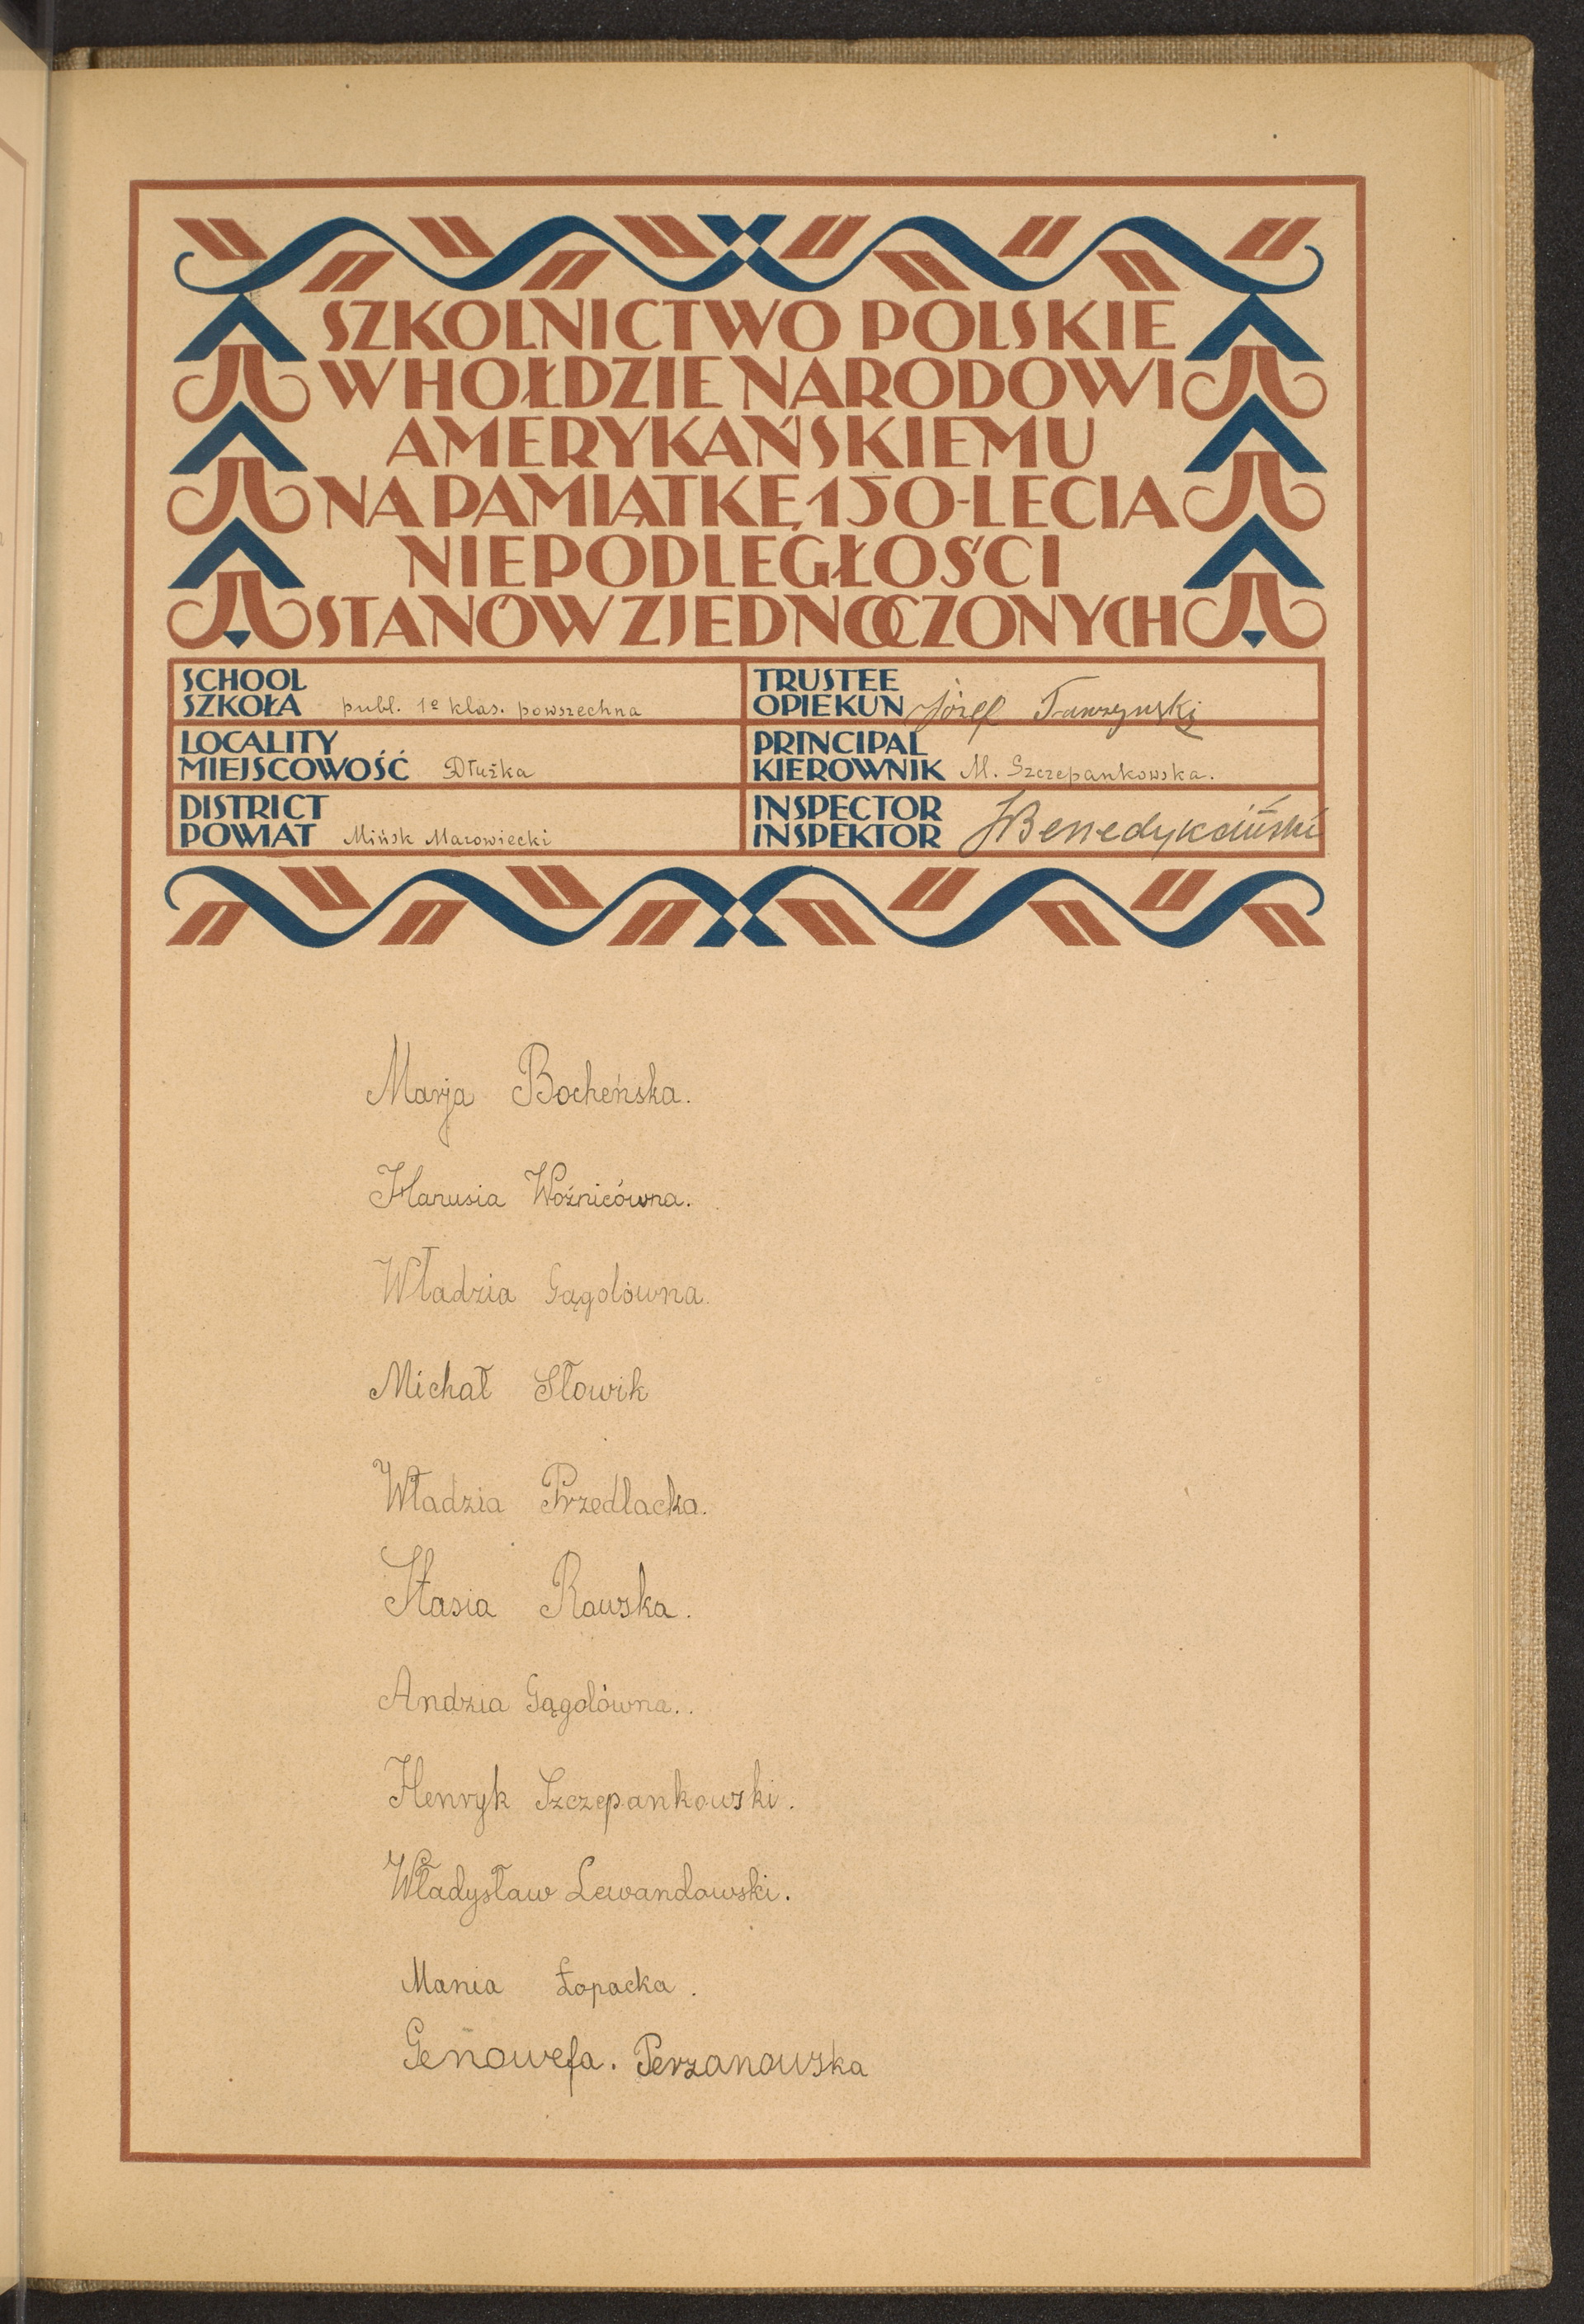 SZKOLNICTWO POLSKIE
W HOŁDZIE NARODOWI
AMERYKAŃSKIEMU
NA PAMIĄTKĘ 150-LECIA
NIEPODLEGŁOŚCI
STANÓW ZJEDNOCZONYCH
SCHOOL
SZKOŁA publ. 1e klas. powszechna
TRUSTEE
OPIEKUN Józef
LOCALITY
MIEJSCOWOŚĆ Dłużka
PRINCIPAL
KIEROWNIK M. Szczepankowska.
DISTRICT
POWIAT Mińsk Mazowiecki
INSPECTOR
INSPEKTOR
Marja Bocheńska.
Hanusia Woźnicówna.
Władzia Gągolówna.
Michał Słowik
Władzia Przedlacka.
Stasia Rawska.
Andzia Gągolówna..
Henryk Szczepankowski.
Władysław Lewandowski.
Mania Łopacka.
Genowefa. Perzanowska